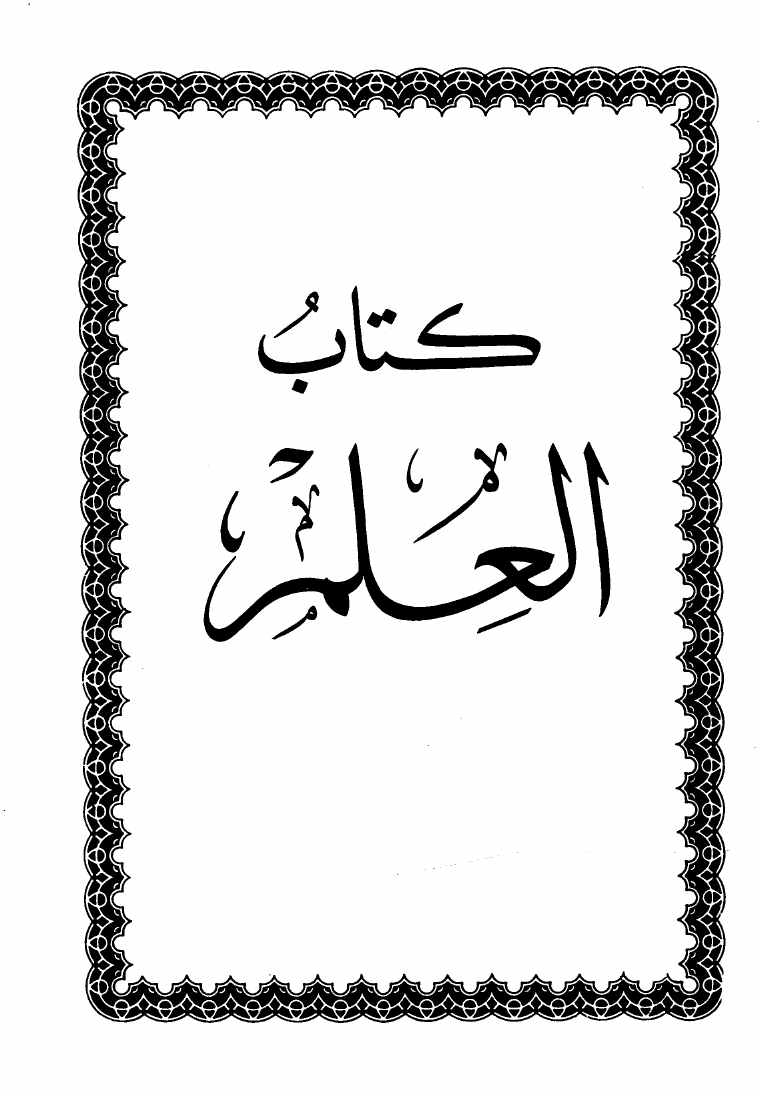 كتابُ
العِلم